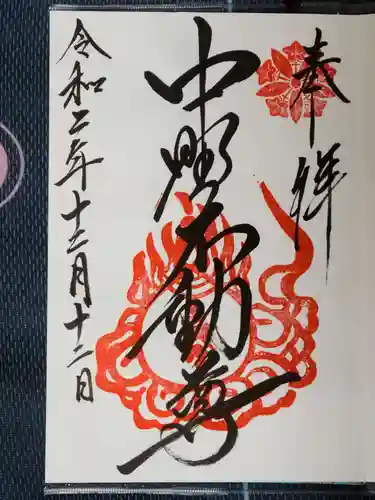 奉拝
中野不動尊
令和二年十二月十二日